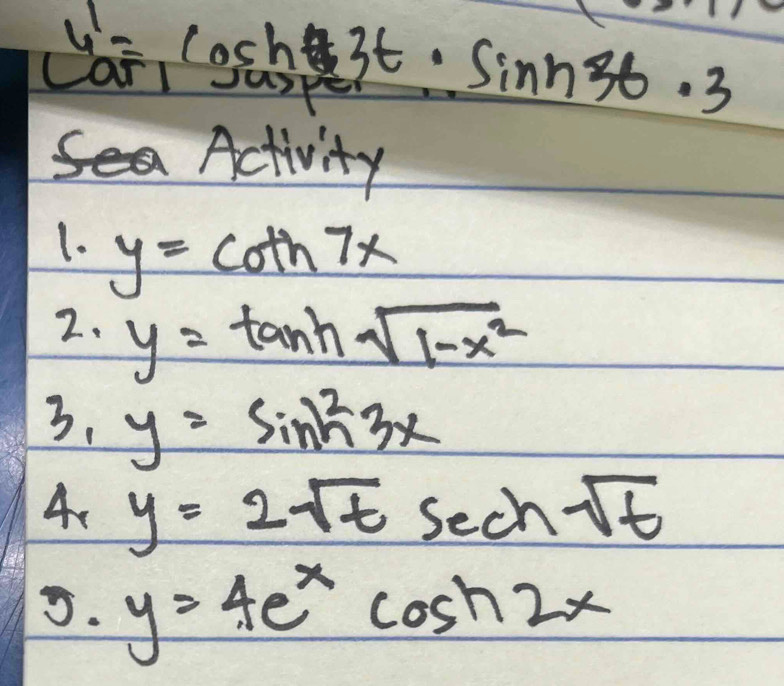 y' = cosh 3t · sinh 3t · 3
Carl Jasper
Activity
1. y = coth 7x
2. y = tanh √(1-x²)
3, y = sinh² 3x
4. y = 2√t sech √t
5. y = 4eˣ cosh 2x